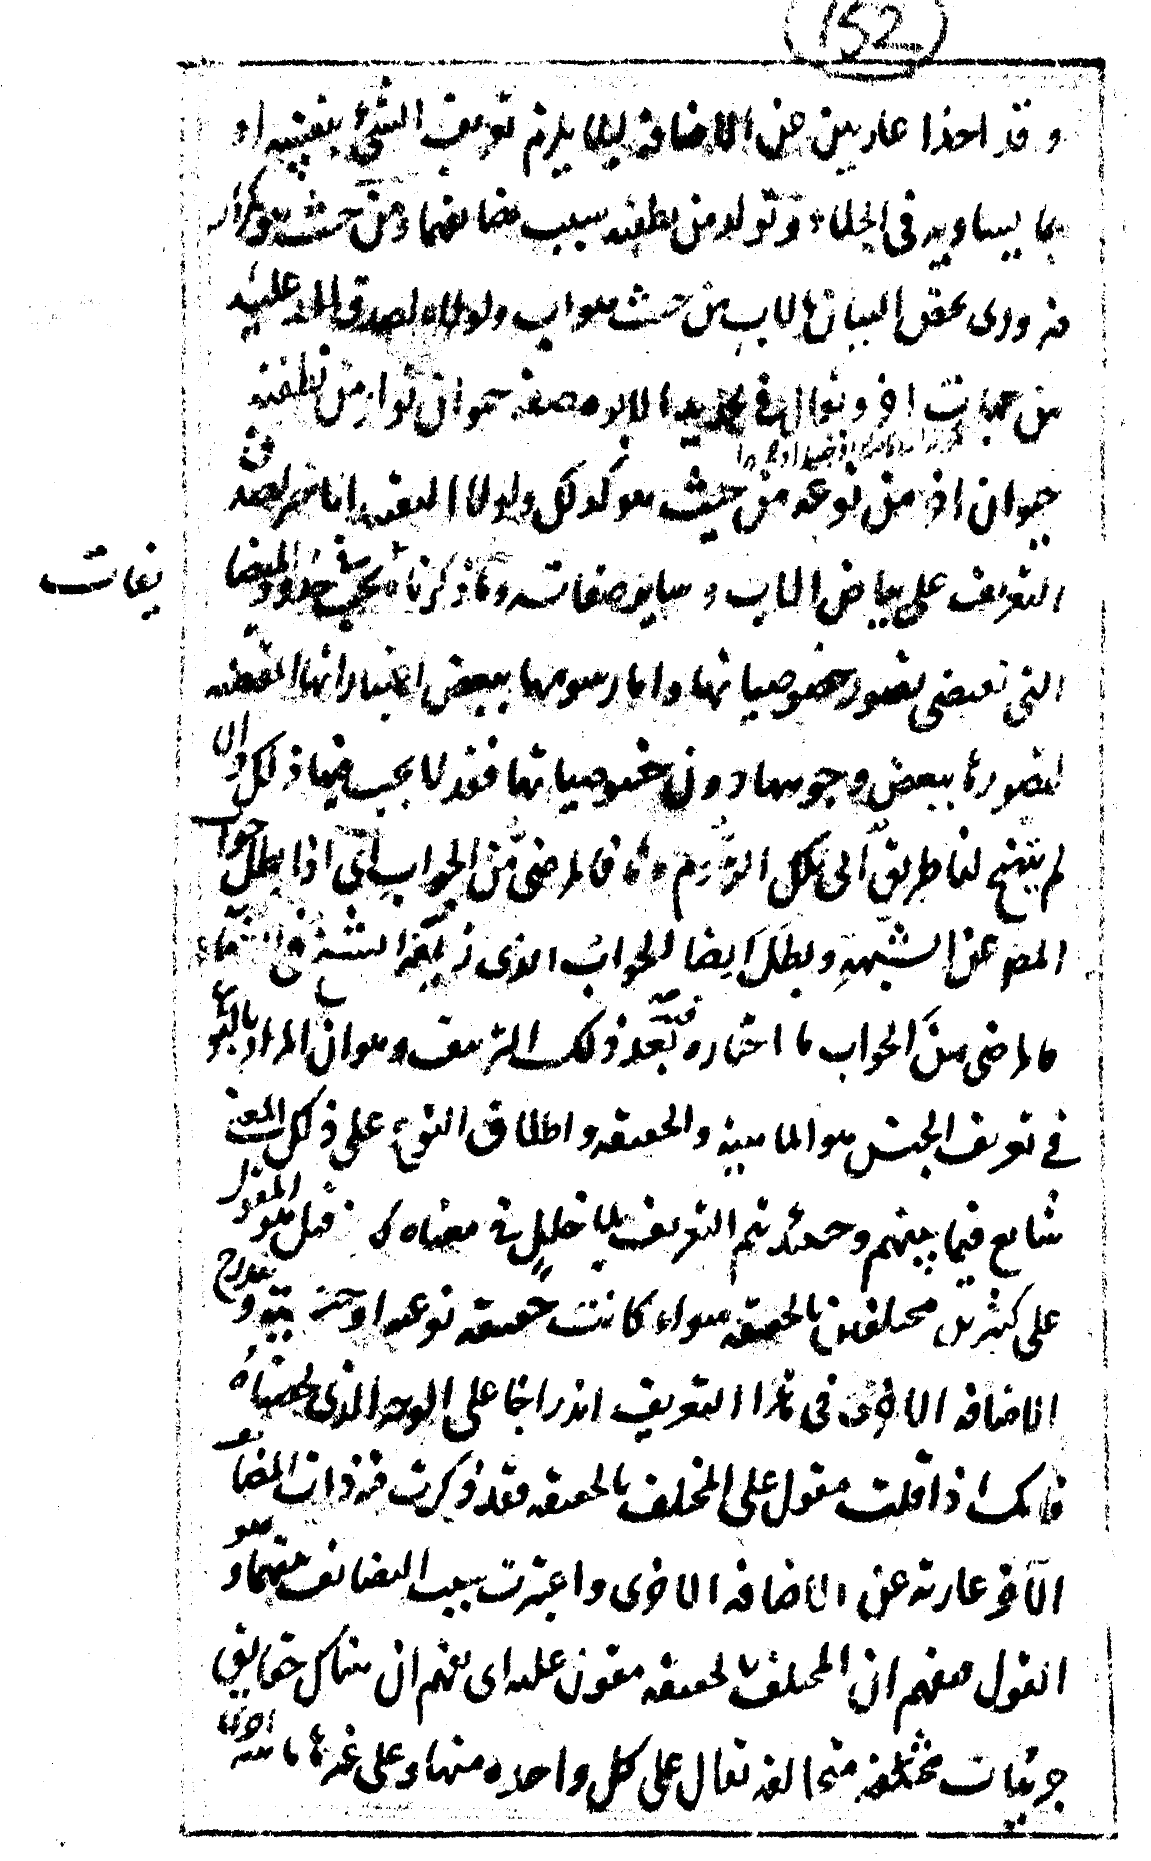 152
و قد اخذا عاريين عن الاضافة ليلا يلزم تعريف الشئ بنفسه او
بما يساويه فى الجلاء و تولد من نطفته سبب تضايفهما و من حيث هو كذلك
ورى محقق البيان الاب من حيث هو اب ولولاه لصدق الحد عليه
من جهات اخر و يقال فى تحديد الابوه صفه حيوان تولد من نطفته
حيوان اخر من نوعه من حيث هو كذلك ولولا التقييد لصدق
التعريف على بياض الاب و ساير صفاته و ما ذكرناه يجب فى حدود المضا
يفات
التى تقتضى تصور خصوصياتها و اما رسومها ببعض اعتباراتها المقتضيه
لتصورها ببعض وجوهها دون خصوصياتها فقد لا يجب فيها ذلك والا
لم يتضح لنا طريق الى تلك الرسوم فالمرضى من الجواب اذا بطل جواب
المص عن الشبهه و بطل ايضا الجواب الذى زيفه الشيخ فى الشفاء
فالمرضى من الجواب ما اختاره فيه بعد ذلك التزييف و هو ان المراد بالنوع
فى تعريف الجنس هو الماهيه والحقيقه و اطلاق النوع على ذلك المعنى
شايع فيما بينهم و حينئذ يتم التعريف بلا خلل فى معناه كـ قيل هو المقول
على كثيرين مختلفين بالحقيقه سواء كانت حقيقه نوعيه او جنسيه و يندرج
الاضافه الاخرى فى هذا التعريف اندراجا على الوجه الذى لخصناه
فانك اذا قلت مقول على المختلف بالحقيقه فقد ذكرت فيه ذات المضايف
الآخر عاريه عن الاضافه الاخرى و اعتبرت سبب التضايف بينهما و هو
القول فيفهم ان المختلف بالحقيقه مقول عليه اى يفهم ان هناك حقايق
جزئيات مختلفه متخالفه يقال على كل واحده منها و على غيرها ماهيه اخرى